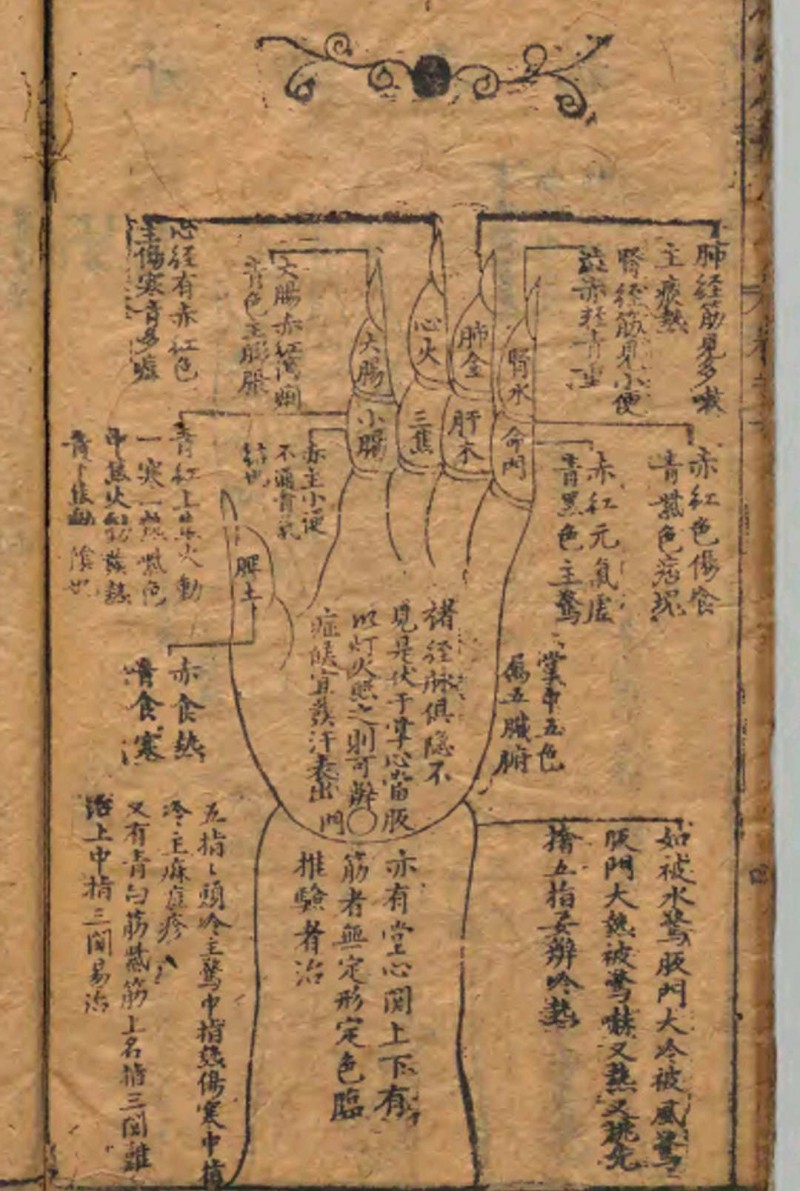 肺経筋見多嗽
主痰熱
腎経筋見小便
澁赤軽青重
心経有赤紅色
主傷寒青多嘘
大腸赤紅瀉痢
青色主膨脹
大腸
心火
肺金
腎水
小腸
三焦
肝木
命門
脾土
赤紅色傷食
青紫色痞塊
赤紅元氣虚
青黑色主驚
赤主小便
不通青氣
結也
青紅上焦火動
一寒一熱紫色
中焦火動發熱
青下焦動陰也
赤食熱
青食寒
掌中五色
属五臓腑
諸経脉俱隐不
見是伏于掌心當版
以灯火照之則可辨
症候宜發汗表出
門
亦有堂心関上下有
筋者無定形定色臨
推驗者治
如被水驚版門大冷被風驚
版門大熱被驚嚇又熱又跳先
搶五指要辨冷熱
五指〻頭冷主驚中指熱傷寒中指
冷主麻痘疹
又有青白筋紫筋上名指三関難
治上中指三関易治